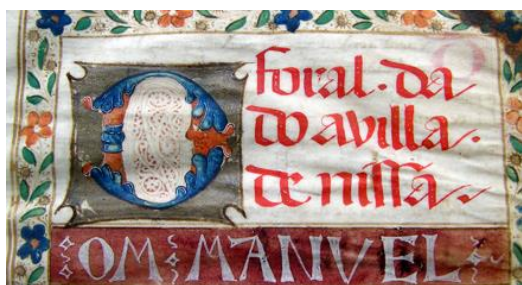 foral · da
do avilla ·
de nissa ··
DOM : MANVEL